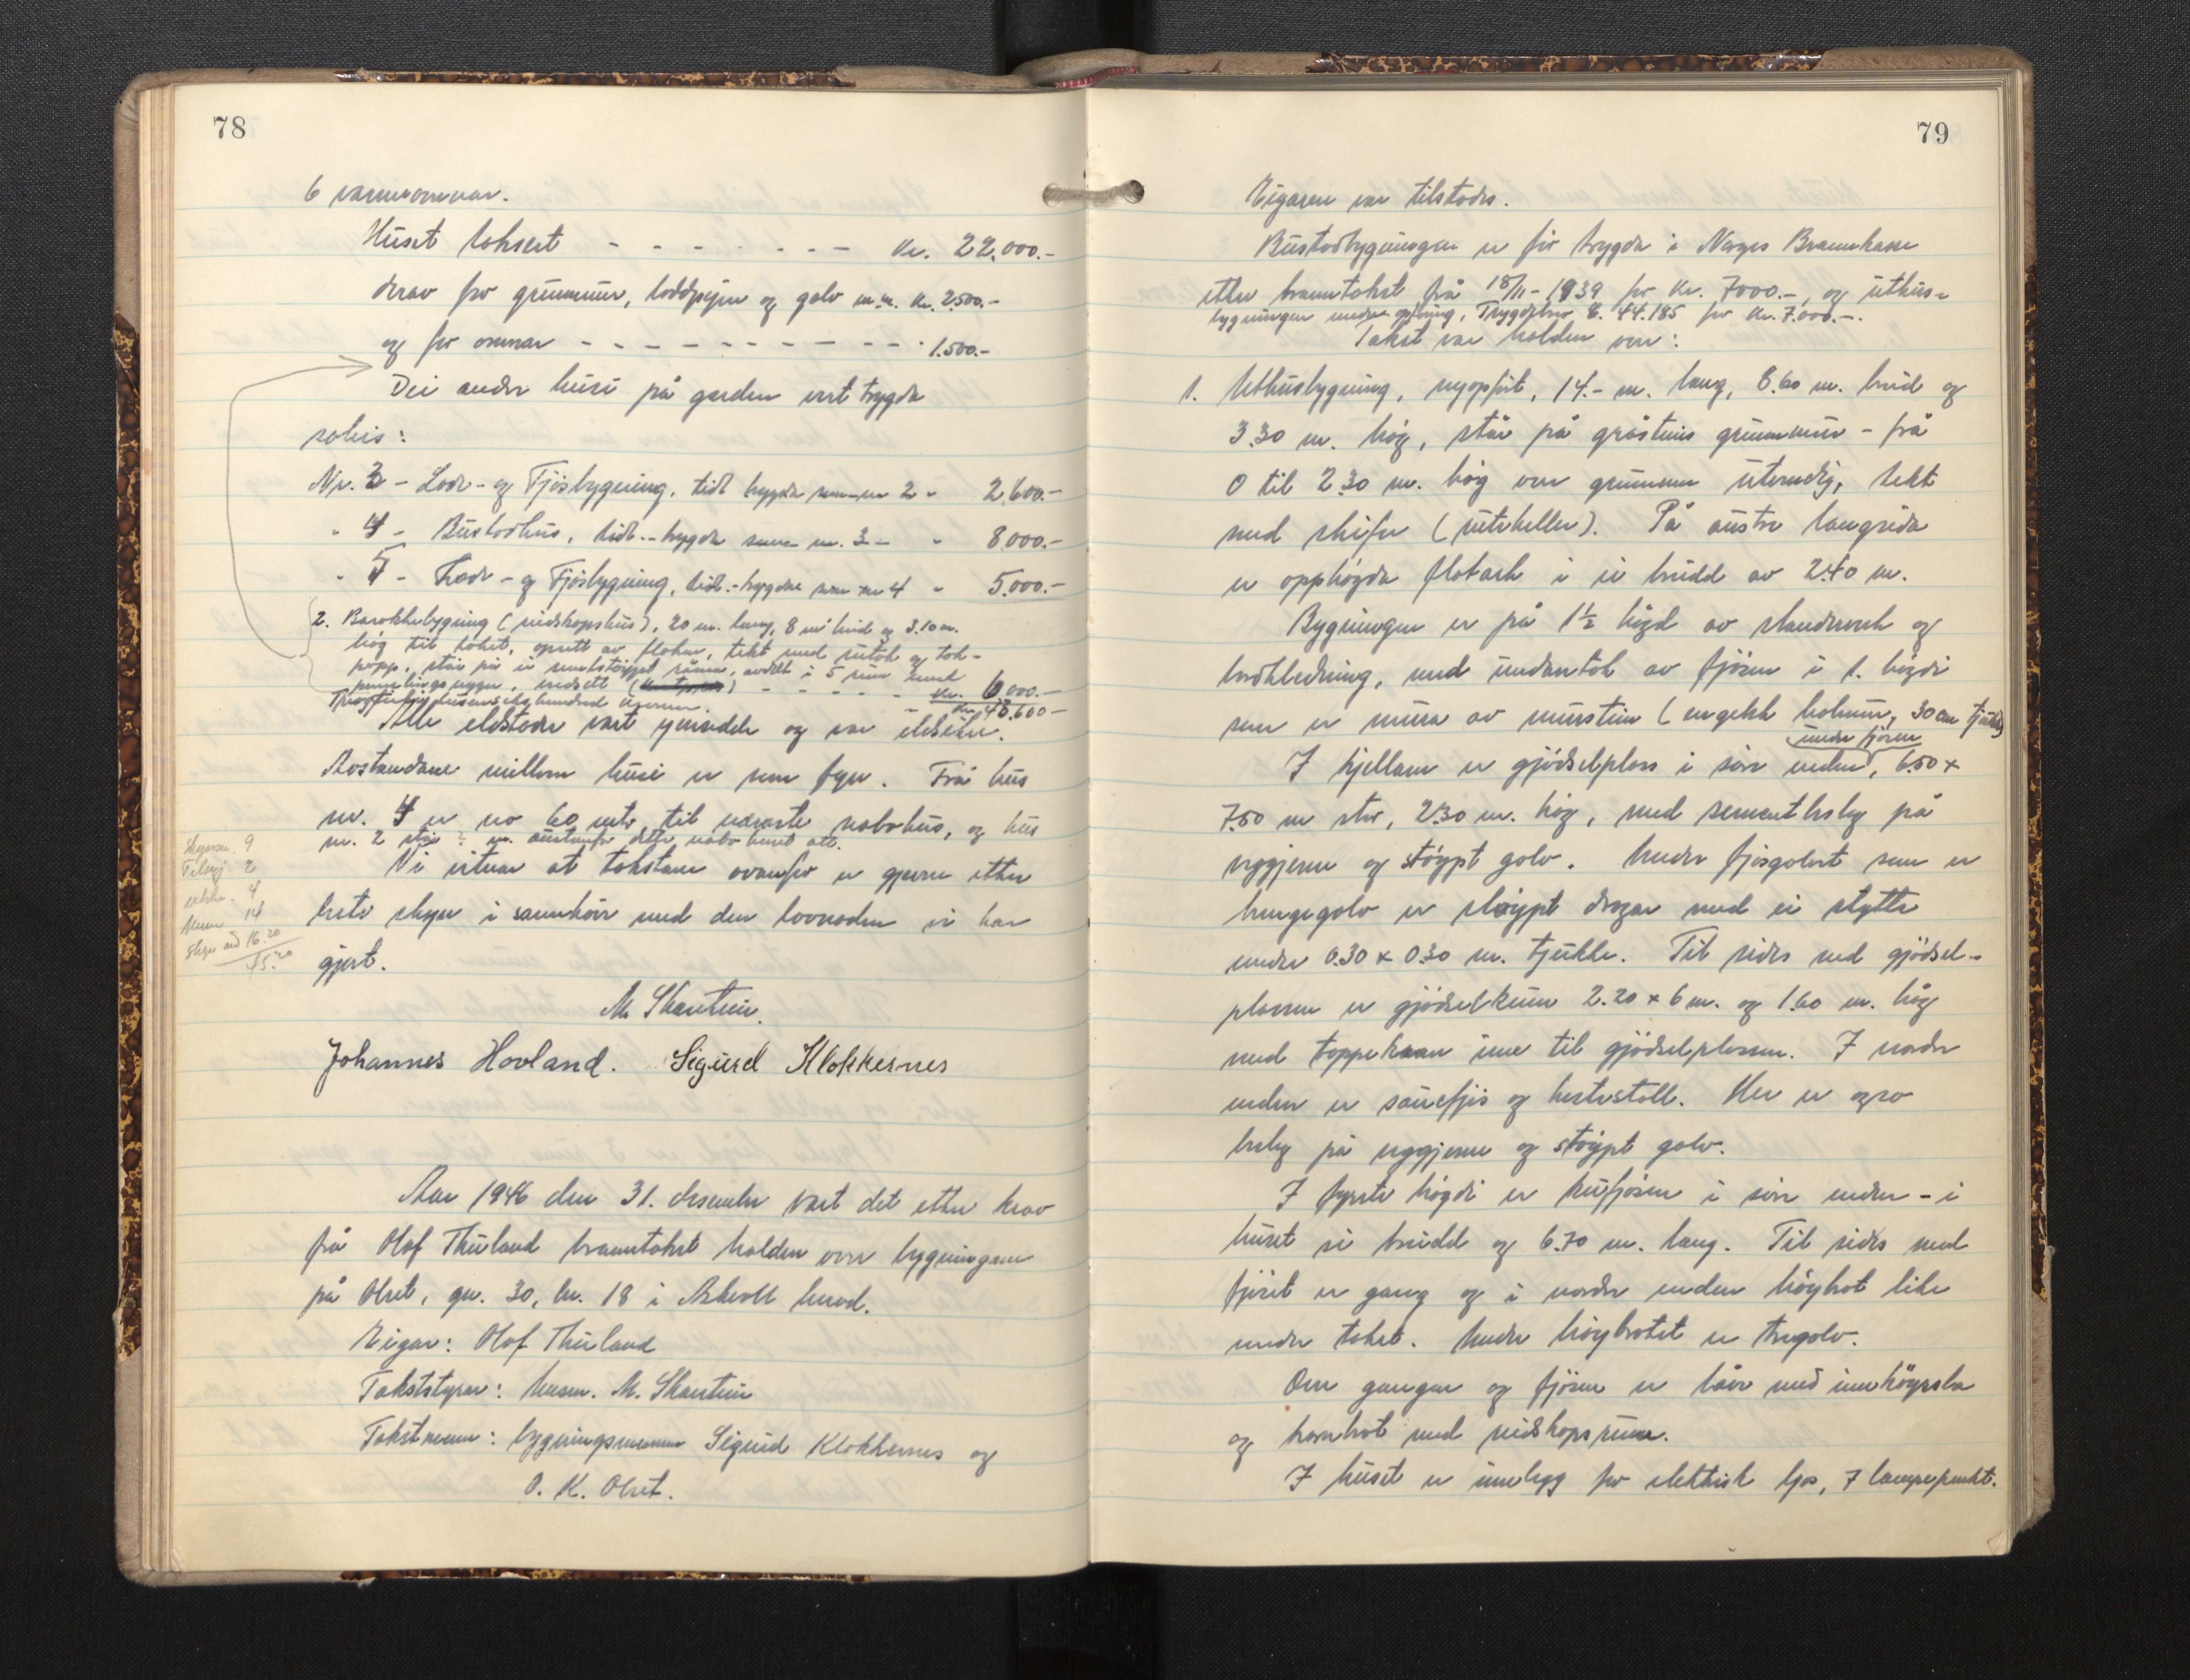 78
6 varmeomnar.
Huset taksert - - - - - - - Kr. 22.000.-
derav for grunnmur, loddpipe og golv m.m. Kr. 2500.-
og for omnar - - - - - - - - - - 1.500.-
Dei andre husi på garden vert trygda
soleis:
Nr. 3 - Lade- og Fjøsbygning, tidl. trygda som nr 2 " 2.600.-
" 4 - Bustadhus, tidl. trygda som nr. 3 - " 8000.-
" 5 - Lade- og Fjøsbygning, tidl. trygda som nr 4 " 5.000.-
2. Barakkebygning (reidskapshus), 20 m. lang, 8 m breid og 3.10 m.
høg til taket, opsett av flakar, tekt med sutak og tak-
papp, står på ein sementstøypt , avdelt i 5 rum med
innvendings veggar, verdsett - - - - - Kr. 6000.-
kroner. - Kr. 43.600 -
Alle eldstader vart gjennomsedde og var i orden.
Avstandane millom husi er som fyrr. Frå hus
nr. 4 er no 60 mtr. til næraste nabohus, og hus
nr. 2 står m. austanfor dette nabohuset att.
Vi vitnar at takstane ovanfor er gjevne etter
beste skyn i samhøve med den lovnaden vi har
gjort.
Skyssm. 9
Tilsyj. 2
4
14
Skyss 16.20
45.20
M. Skarstein.
Johannes Hovland. Sigurd Klokkernes
Aar 1946 den 31. desember vart det etter krav
frå Olaf Thuland branntakst halden over bygningane
på Olset, gn. 30, br. 18 i Askvoll herad.
Eigar: Olaf Thuland
Takststyrar: lensm. M. Skarstein
Takstmenn: bygningsmennene Sigurd Klokkernes og
O. K. Olset.
79
Eigaren var tilstades.
Bustadbygningen er før trygda i Norges Brannkasse
etter branntakst frå 18/11-1939 for Kr. 7000.-, og uthus-
bygningen under opføring, Trygdebrev E. 44.185 for Kr. 7.000.-.
Takst var halden over:
1. Uthusbygning, nyopført, 14.- m. lang, 8.60 m. breid og
3.30 m. høg, står på gråsteins grunnmur - frå
0 til 2.30 m. høg over grunnen utvendig, tekt
med skifer (ruteheller). På austre langsida
er opphøgda flotark i ei breidd av 2.40 m.
Bygningen er på 1½ høgd av standerverk og
bordkledning, med undantak av fjøsen i 1. høgdi
som er mura av murstein (engelsk holmur, 30 cm tjukk)
I kjellaren er gjødselplass i søre enden, under fjøsen, 6.50 x
7.50 m stor, 2.30 m. høg, med sementbeslag på
veggjerne og støypt golv. Under fjøsgolvet som er
hengegolv er støypt dragar med ei stytte
under 0.30 x 0.30 m. tjukke. Til sides ved gjødsel-
plassen er gjødselkum 2.20 x 6 m. og 1.60 m. høg
med tappekran inn til gjødselplassen. I nordre
enden er sauefjøs og hestestall. Her er ogso
beslag på veggjerne og støypt golv.
I fyrste høgdi er kufjøsen i søre enden - i
huset si breidd og 6.70 m. lang. Til sides med
fjøset er gang og i nordre enden høybrot like
under taket. Under høybrotet er tregolv.
Over gangen og fjøsen er låve med innkøyrsla
og kornbrot med reidskapsrum.
I huset er innlegg for elektrisk ljos, 7 lampepunkt.